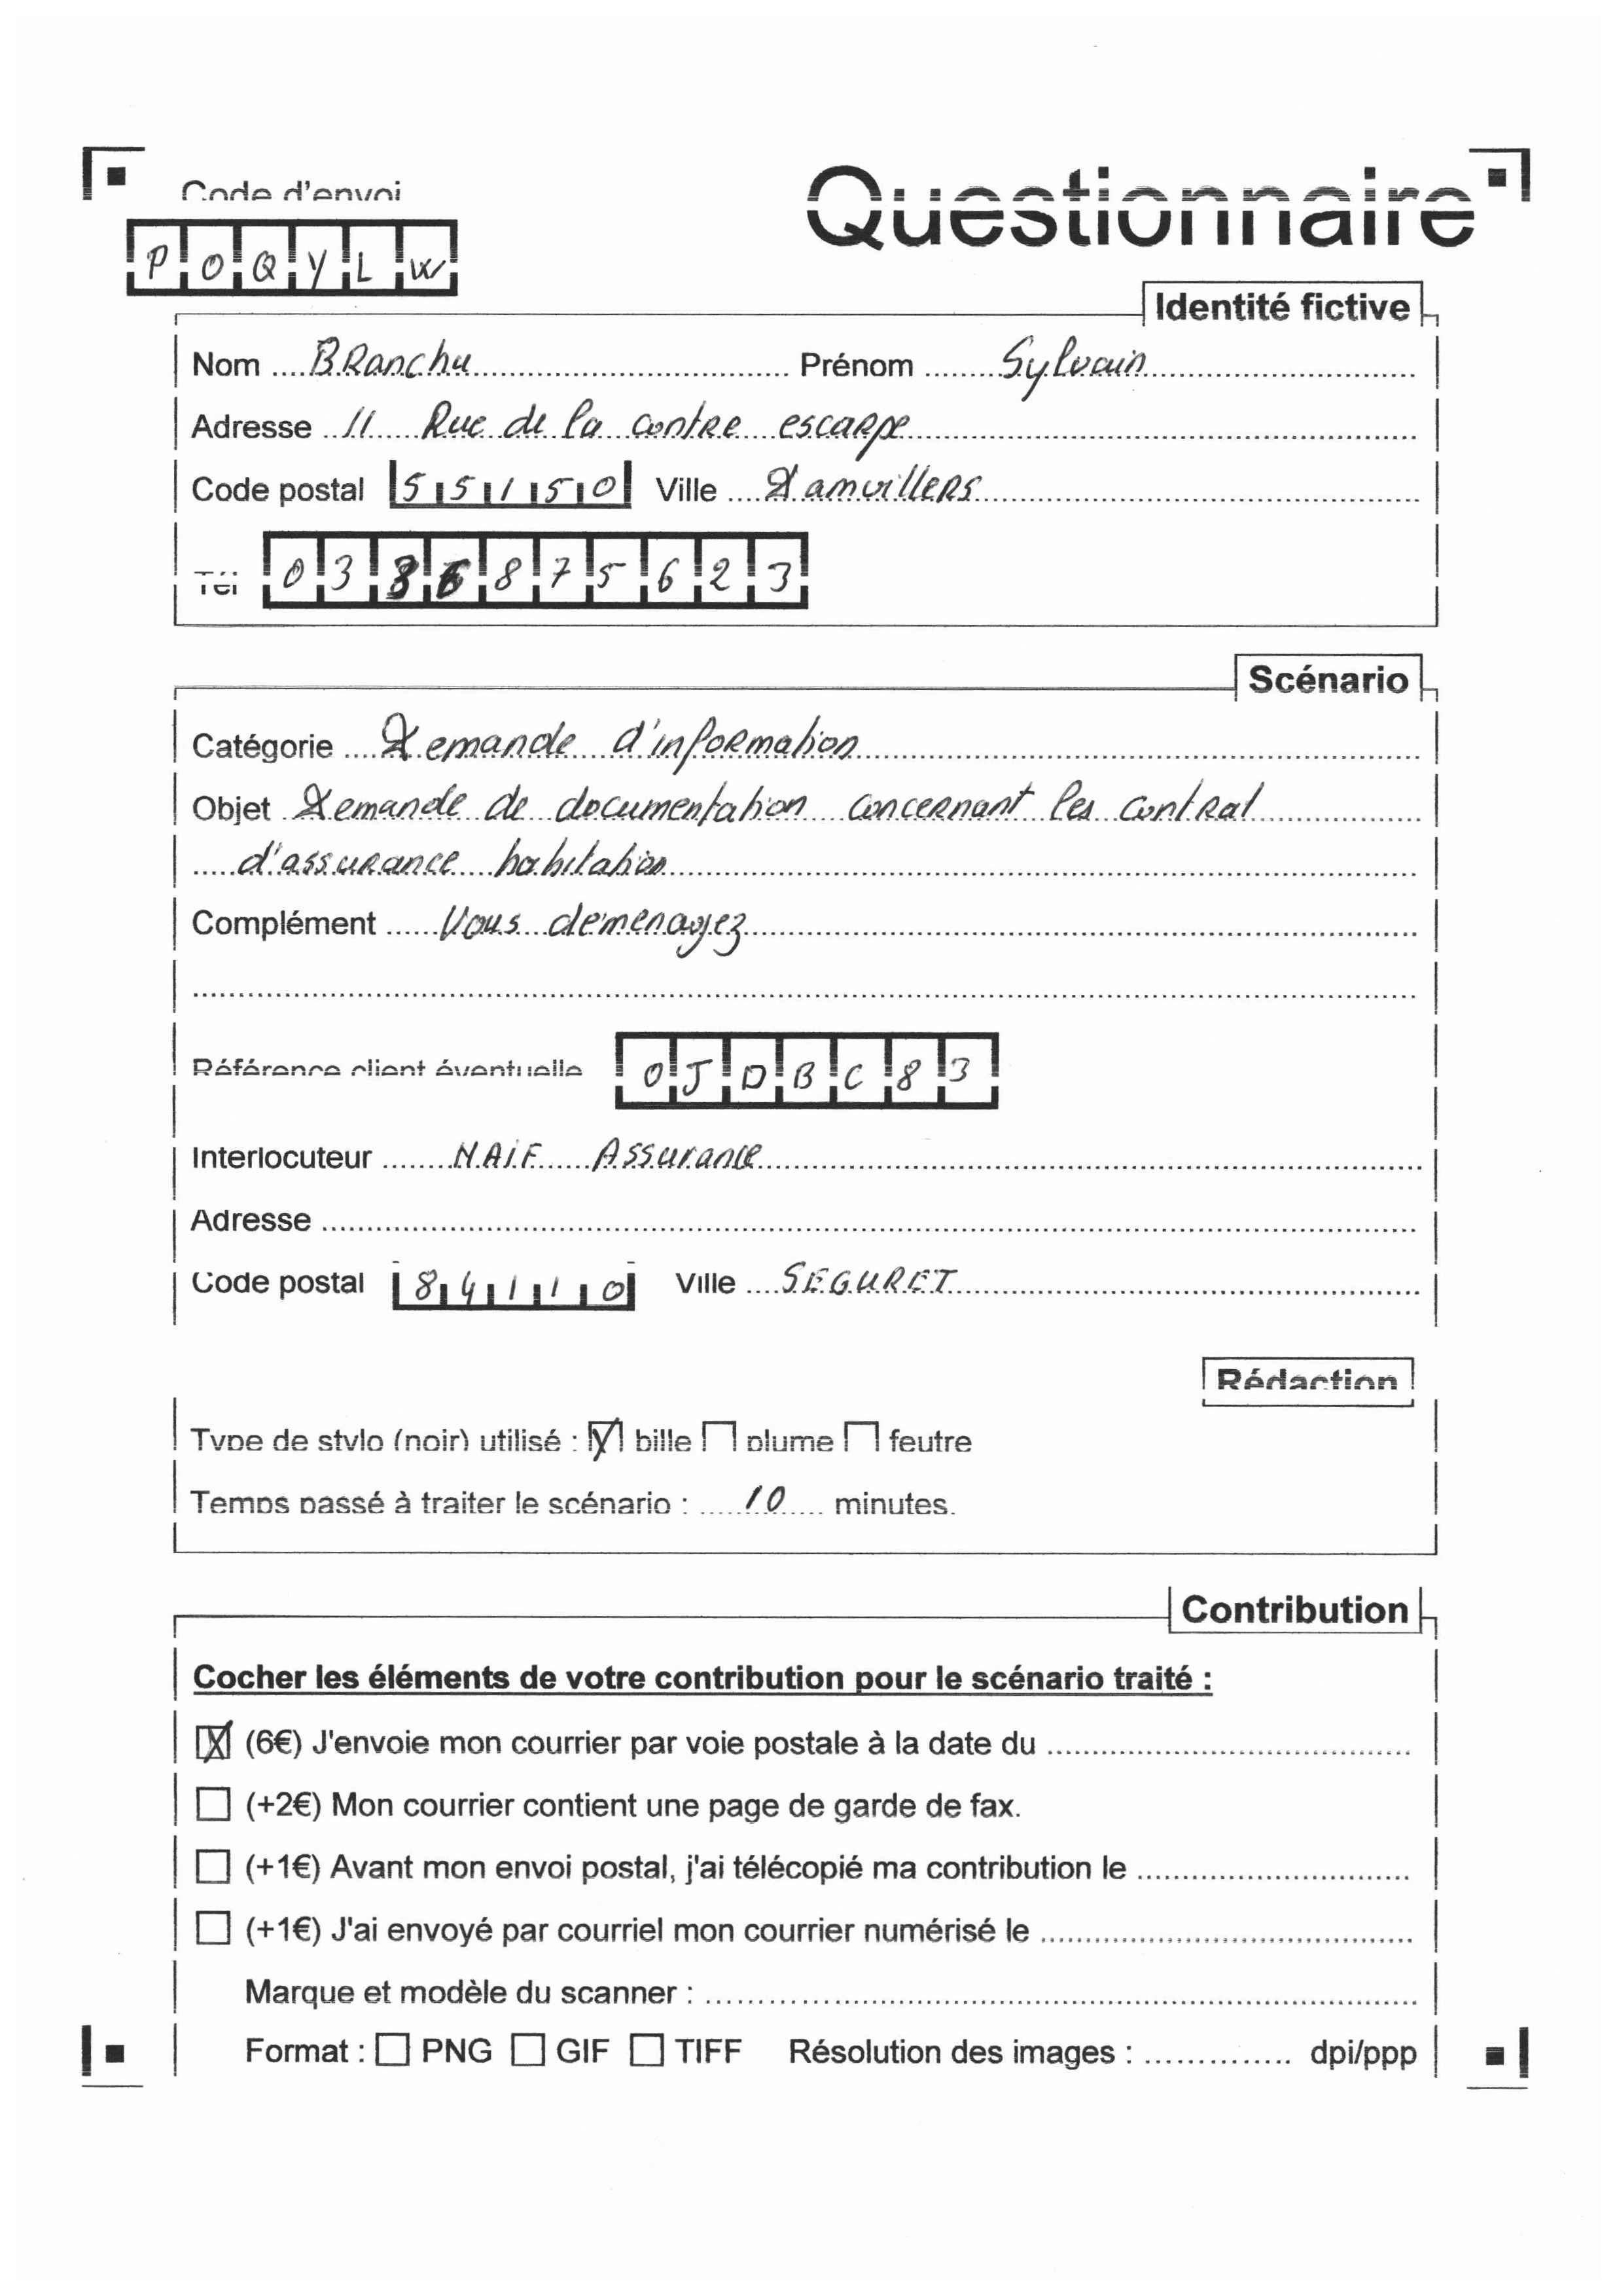 Code d'envoi
Questionnaire
POQYLW
Identité fictive
Nom ....BRanchu.... Prénom ....Sylvain....
Adresse ..11 Rue de la contre escaRpe....
Code postal 55150 Ville ....DamvilleRs....
Tél 03 8 875623
Scénario
Catégorie ....Demande d'infoRmation....
Objet ..Demande de documentation conceRnant les contRat....
....d'assuRance habitation....
Complément ......Vous demenagez....
Référence client éventuelle 0JDBC83
Interlocuteur .......NAiF AssuRance....
Adresse ....
Code postal 84110 Ville ....SEGURET....
Rédaction
Type de stylo (noir) utilisé : ☒ bille ☐ plume ☐ feutre
Temps passé à traiter le scénario : .....10.... minutes.
Contribution
Cocher les éléments de votre contribution pour le scénario traité :
☒ (6€) J'envoie mon courrier par voie postale à la date du ....
☐ (+2€) Mon courrier contient une page de garde de fax.
☐ (+1€) Avant mon envoi postal, j'ai télécopié ma contribution le ....
☐ (+1€) J'ai envoyé par courriel mon courrier numérisé le ....
Marque et modèle du scanner : ....
Format : ☐ PNG ☐ GIF ☐ TIFF Résolution des images : .............. dpi/ppp